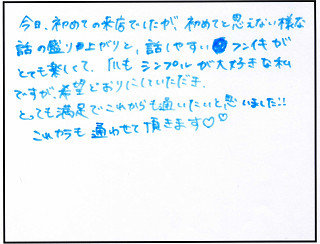 今日、初めての来店でしたが、初めてと思えない様な
話の盛り上がりと、話しやすいフンイキが
とても楽しくて、爪もシンプルが大好きな私
ですが、希望どおりにしていただき、
とっても満足でこれからも通いたいと思いました!!
これからも通わせて頂きます♡♡